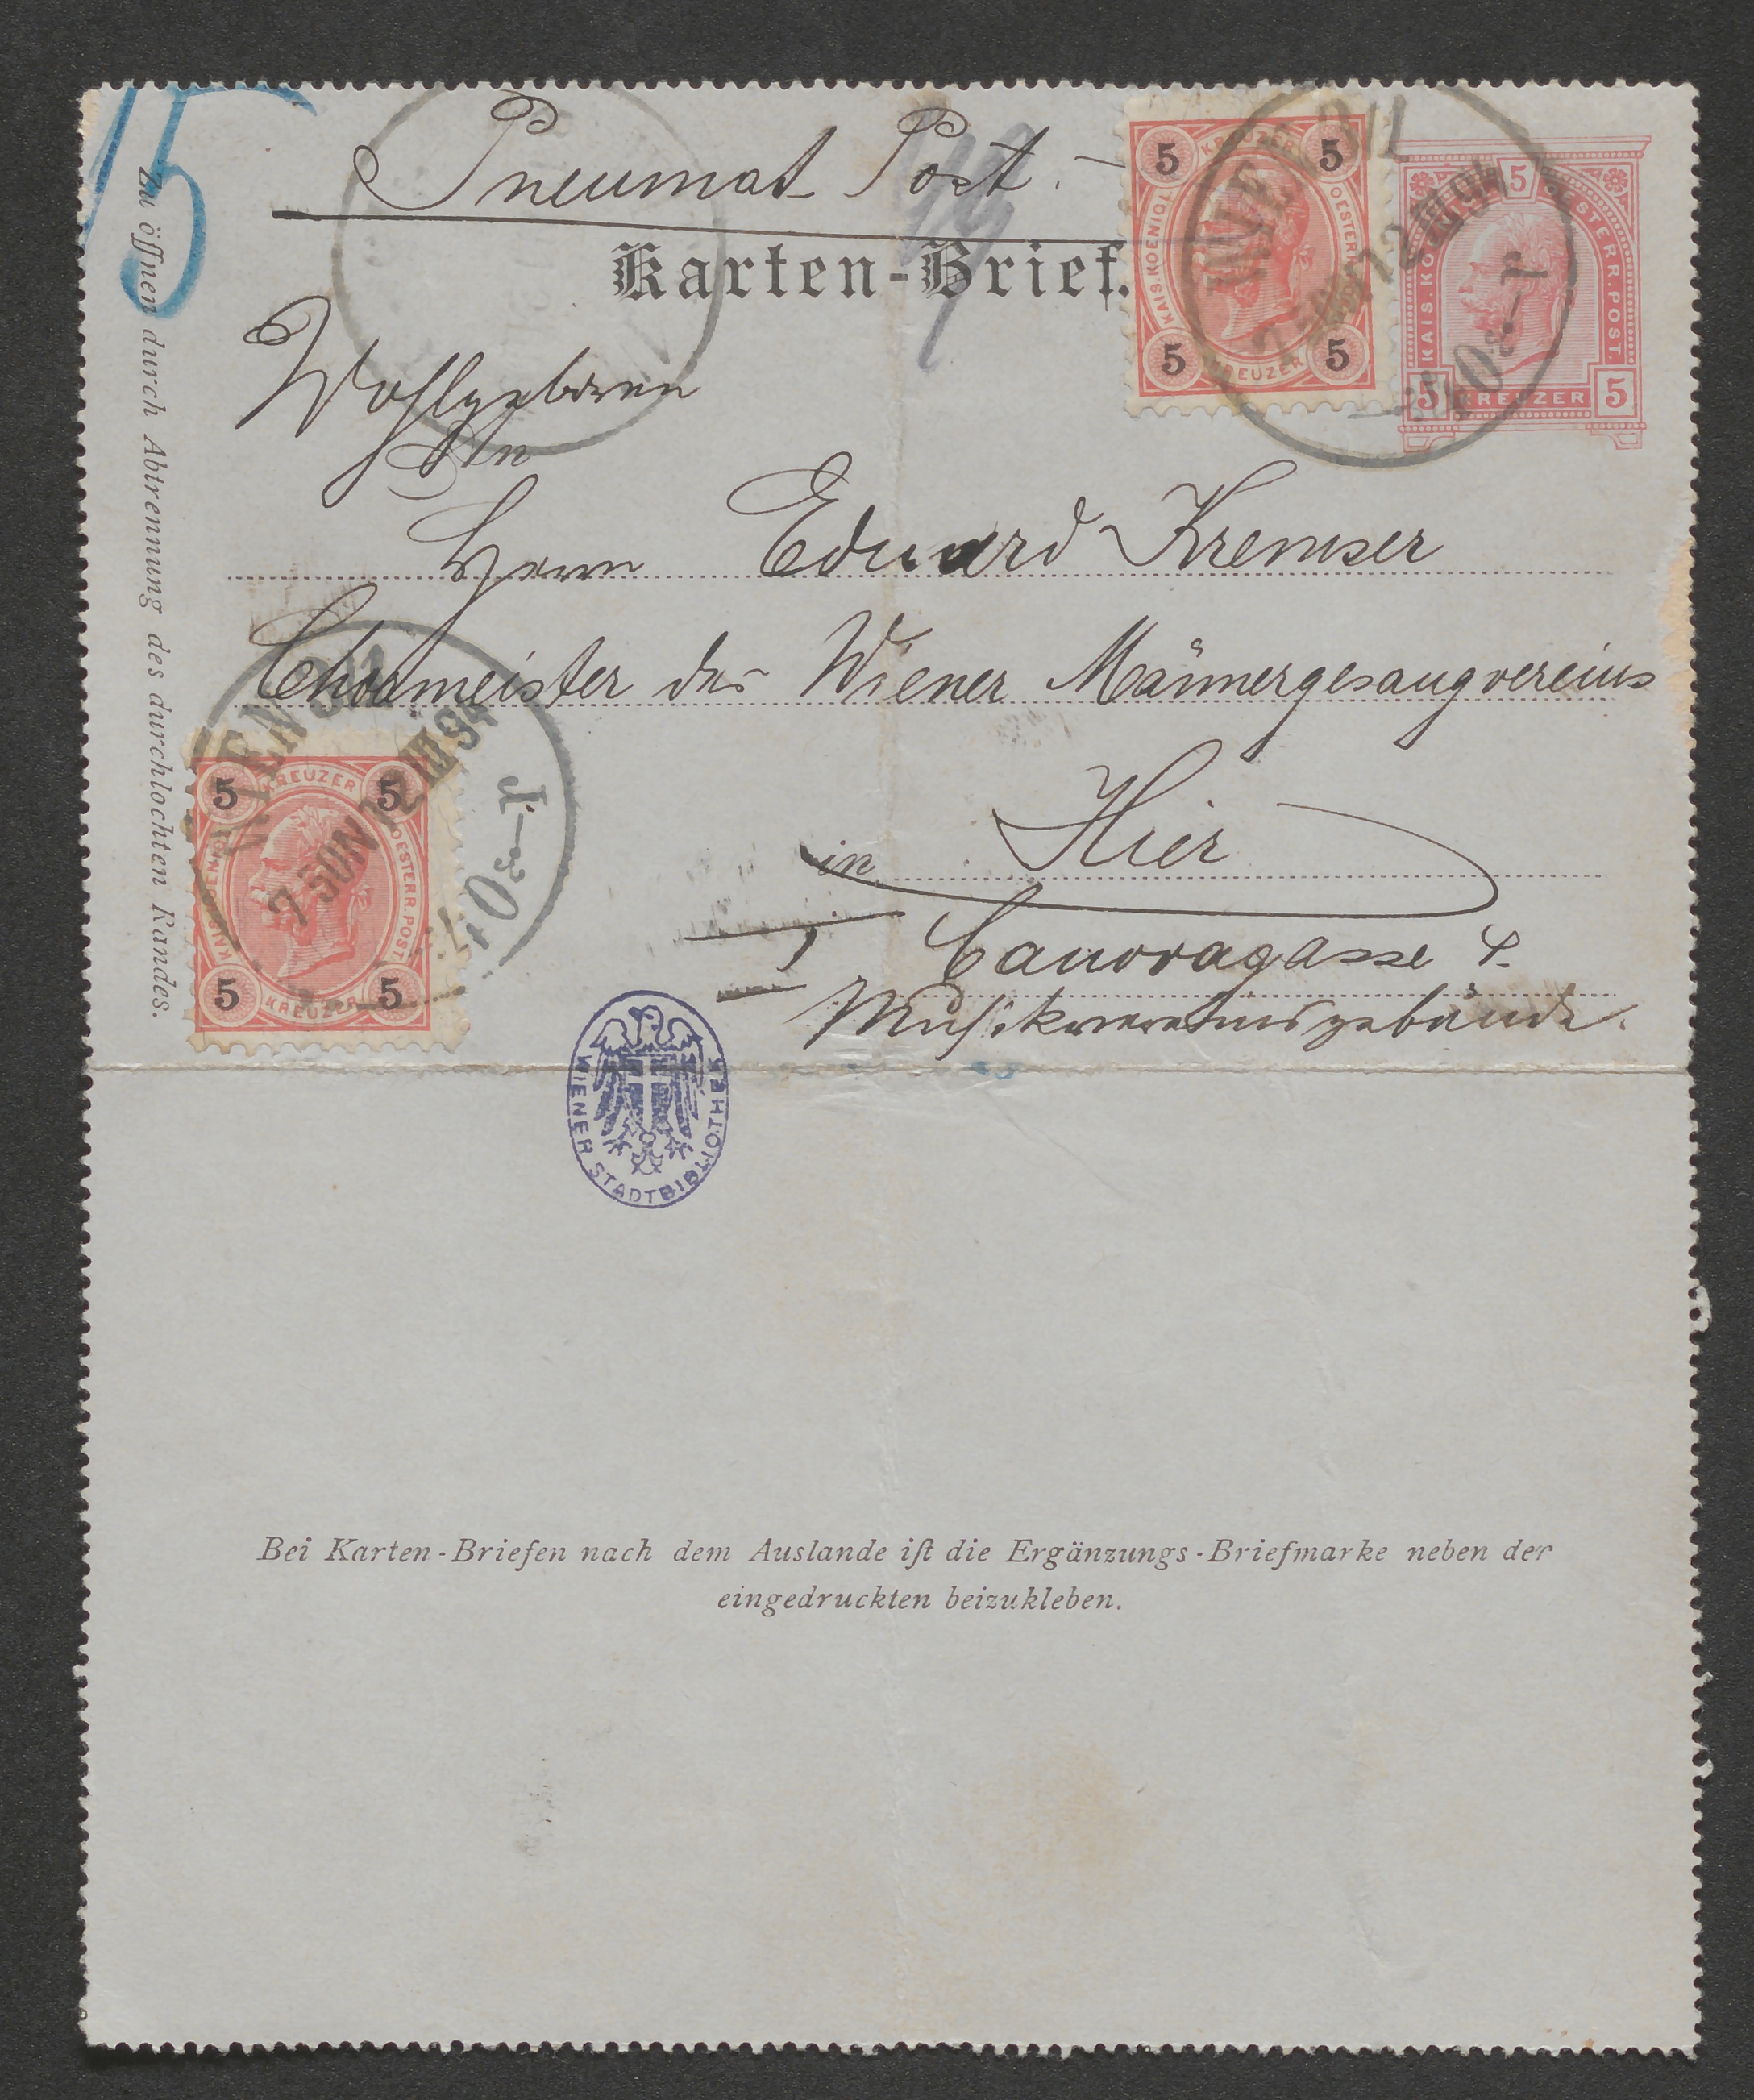 15
Pneumat Post.
Karten-Brief.
Wohlgeboren
An
Herrn Eduard Kremser
Chormeister des Wiener Männergesangvereins
in Hier
Canovagasse 4.
Musikvereinsgebäude.
Zu öffnen durch Abtrennung des durchlochten Randes.
5 KREUZER 5
KAIS. KOENIGL. OESTERR. POST
5 KREUZER 5
5
KAIS. KÖNIGL. OESTERR. POST.
5 KREUZER 5
WIEN
94
5 KREUZER 5
KAIS. KOENIGL. OESTERR. POST
5 KREUZER 5
WIEN
7 50N 94
WIENER STADTBIBLIOTHEK
Bei Karten-Briefen nach dem Auslande iſt die Ergänzungs-Briefmarke neben der
eingedruckten beizukleben.